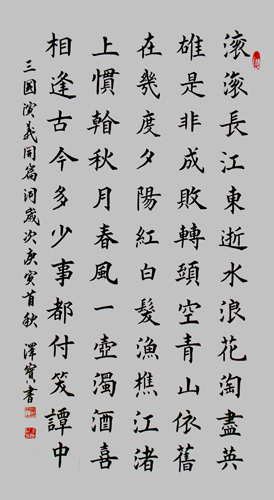 滾滾長江東逝水浪花淘盡英
雄是非成敗轉頭空青山依舊
在幾度夕陽紅白髮漁樵江渚
上慣翰秋月春風一壺濁酒喜
相逢古今多少事都付笑譚中
三國演義開篇詞歲次庚寅首秋 澤寶書